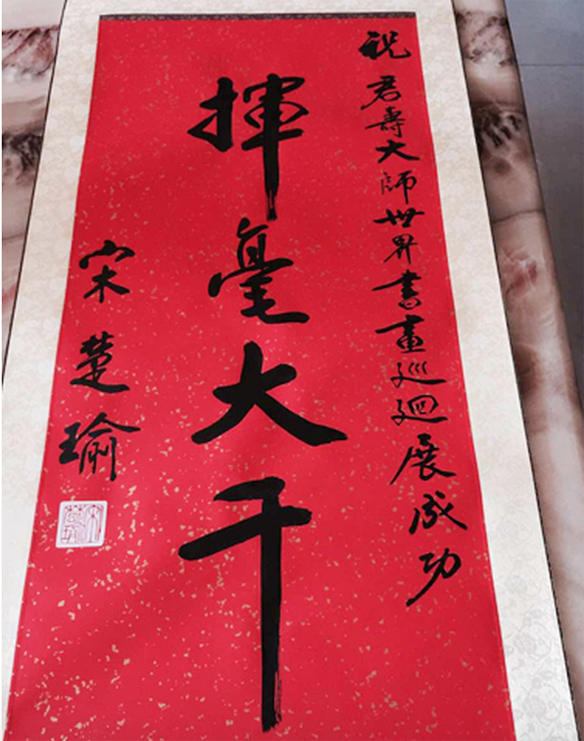 祝君壽大師世界書畫巡迴展成功
揮毫大千
宋楚瑜